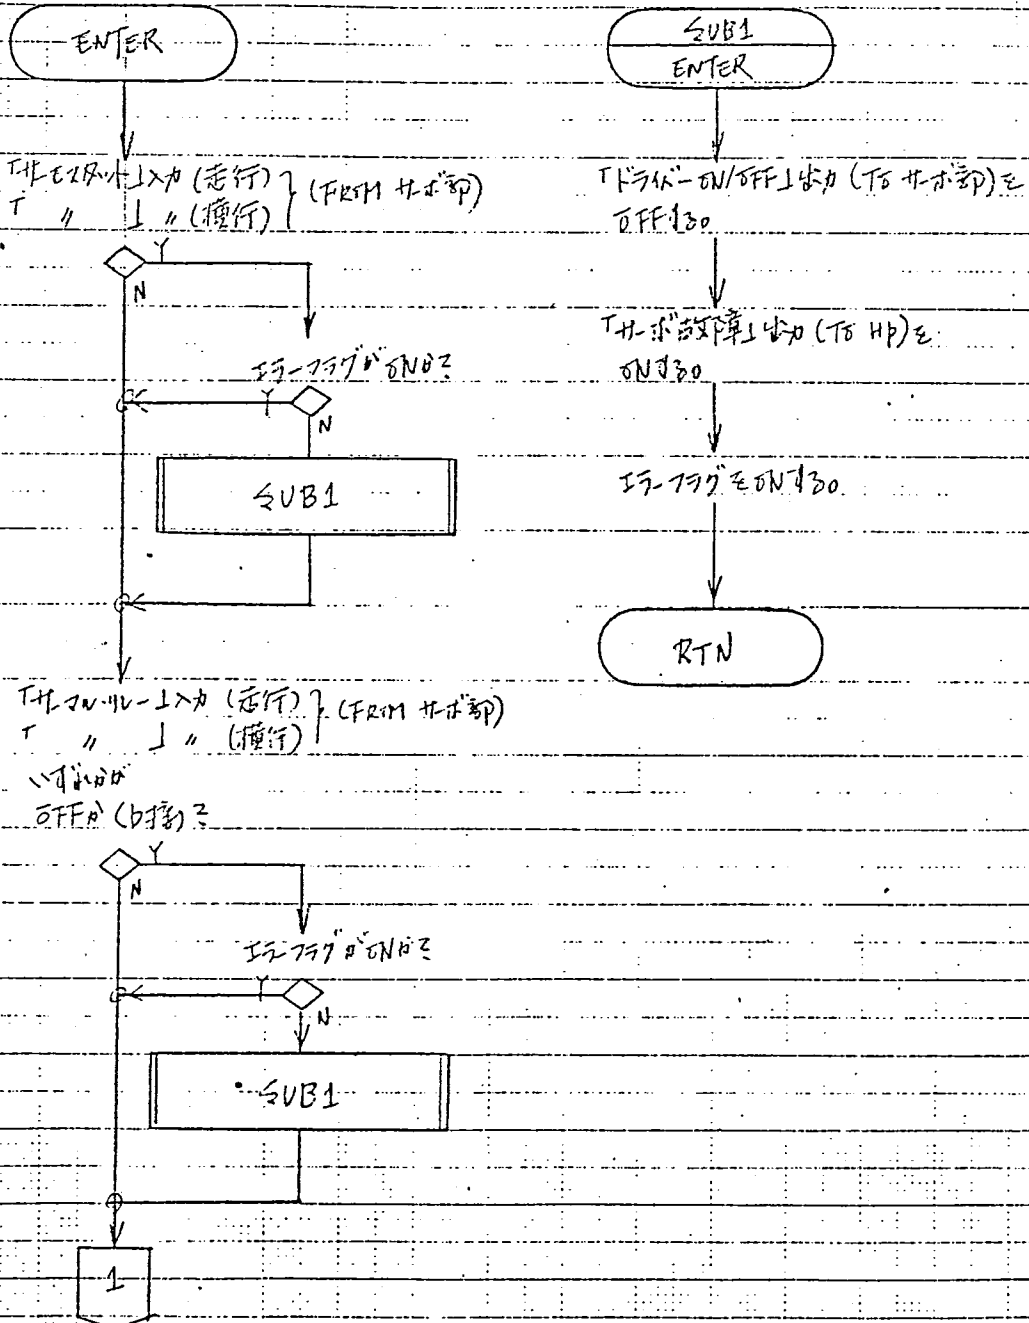 ENTER
「サーモスタット」入力 (走行)
「 〃 」 〃 (横行)
(FROM サーボ部)
Y
N
エラーフラグがONか?
Y
N
SUB1
「サーマル・リレー」入力 (走行)
「 〃 」 〃 (横行)
(FROM サーボ部)
いずれかが
OFFか (b接)?
Y
N
エラーフラグがONか?
Y
N
SUB1
1
SUB1
ENTER
「ドライバーON/OFF」出力 (TO サーボ部)を
OFFする。
「サーボ故障」出力 (TO HP)を
ONする。
エラーフラグをONする。
RTN